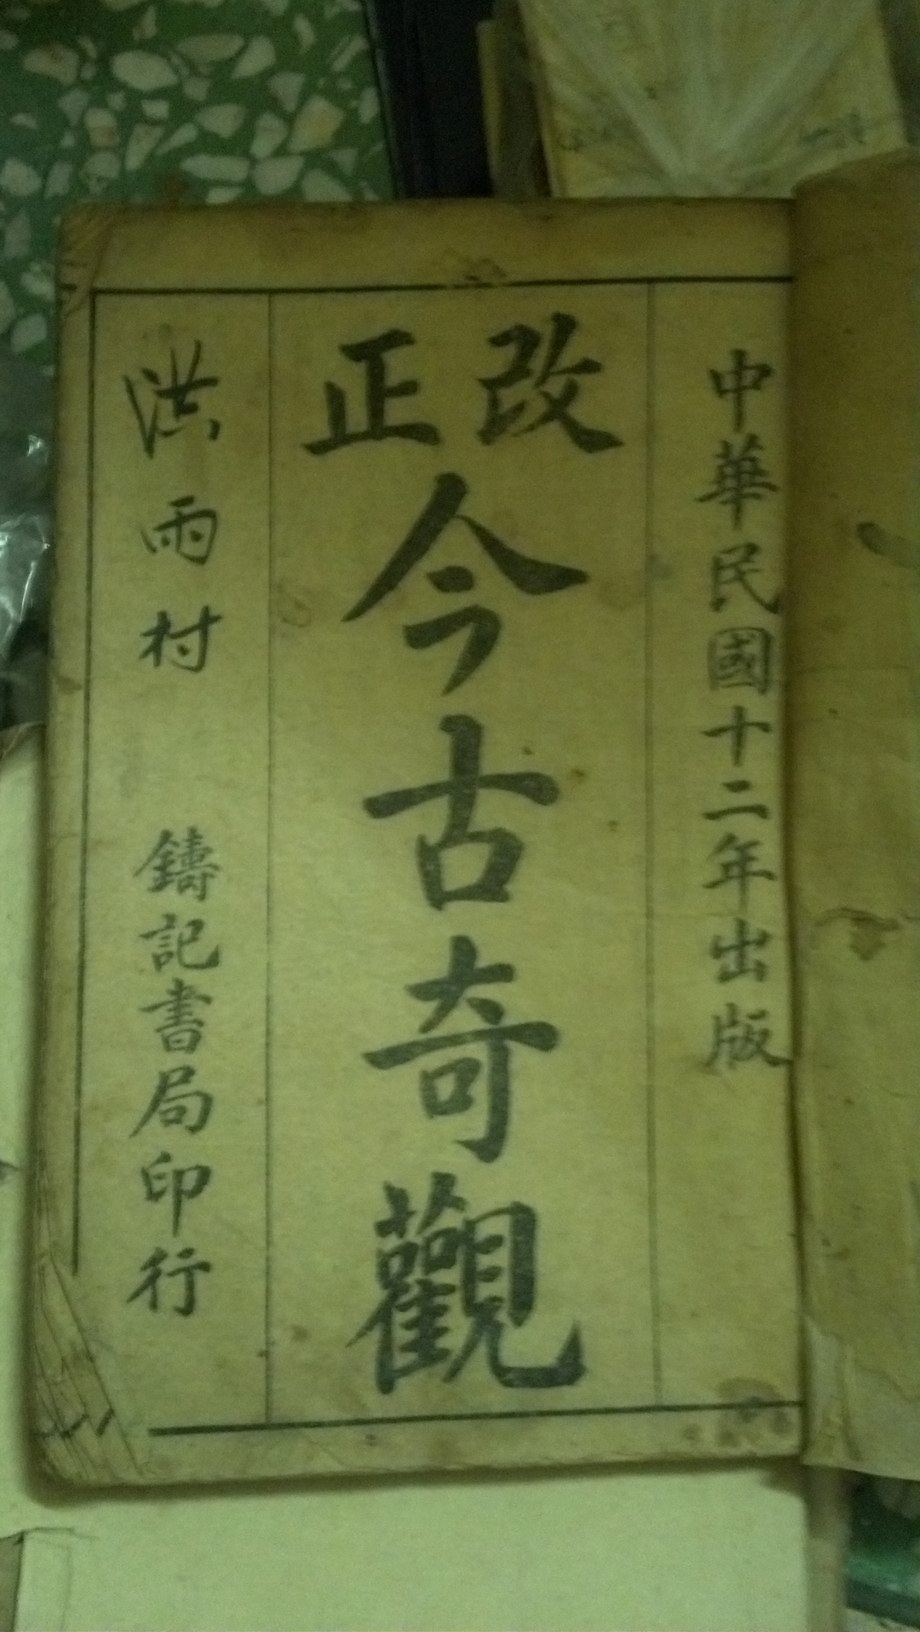 中華民國十二年出版
改正
今古奇觀
洪雨村
鑄記書局印行